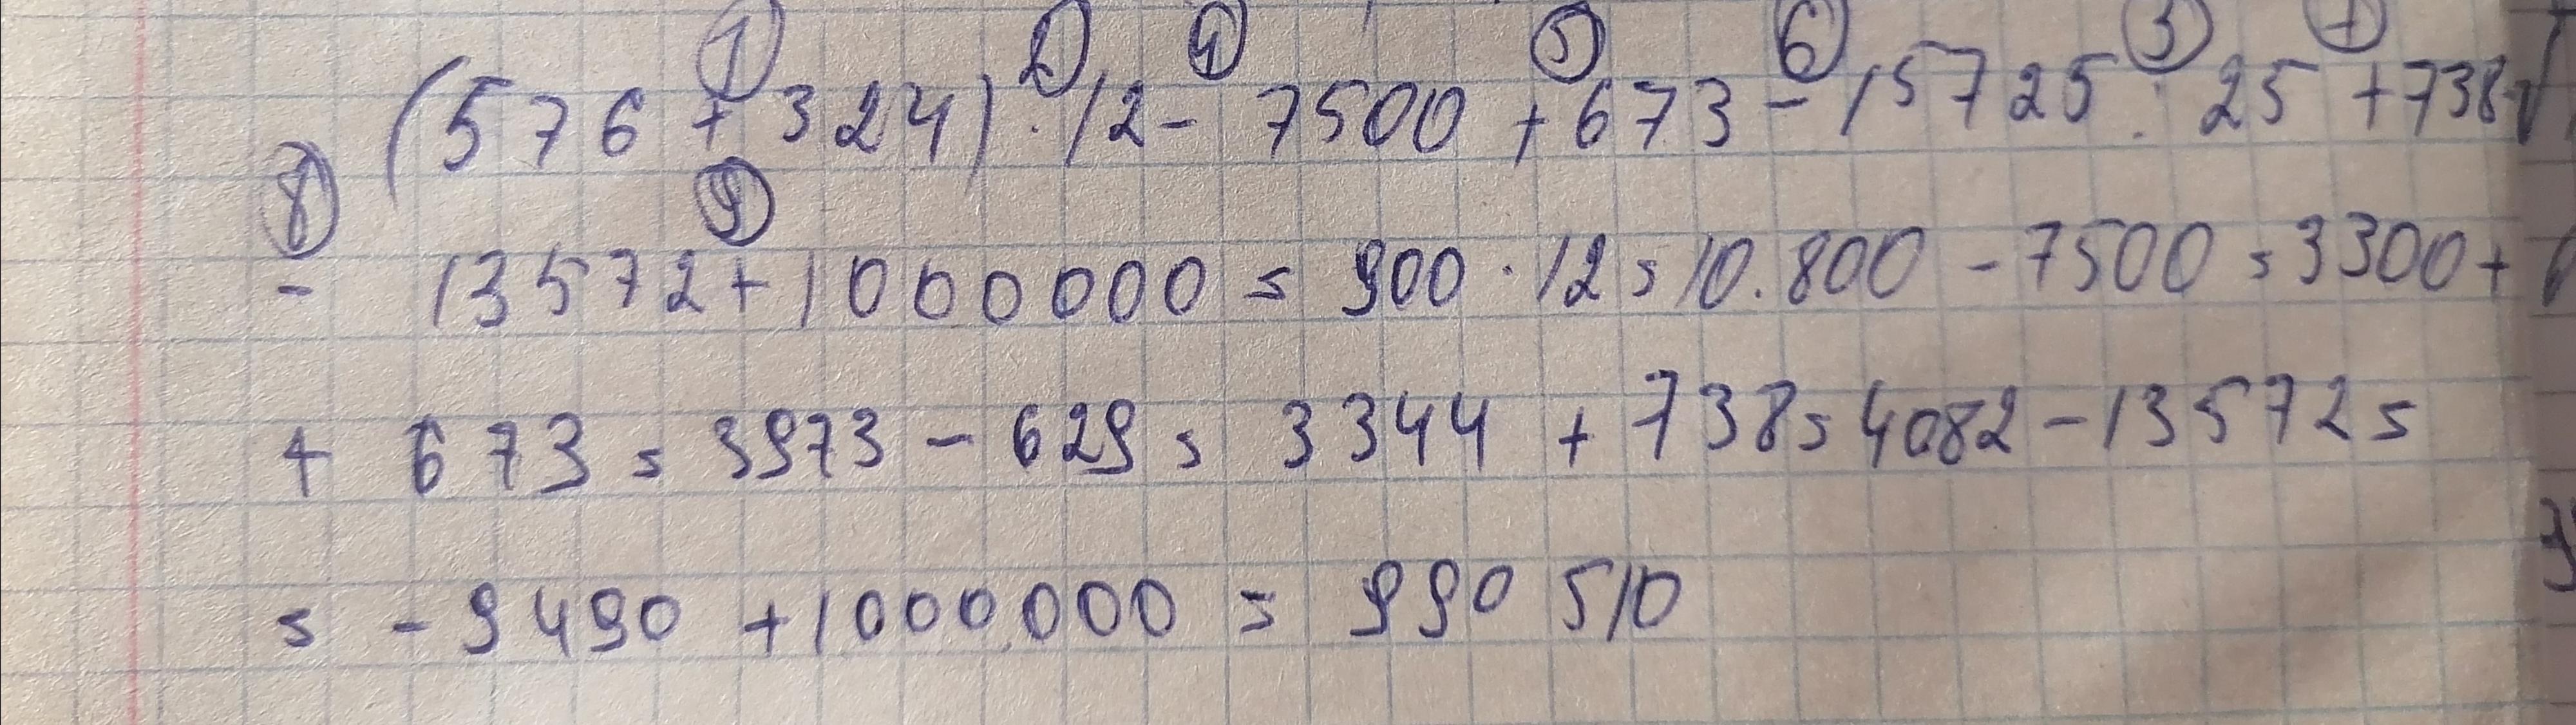 ① ② ④ ⑤ ⑥ ③ ⑦
(576 + 324) · 12 - 7500 + 673 - 15725 : 25 + 738
⑧ ⑨
- 13572 + 1000000 = 900 · 12 = 10.800 - 7500 = 3300 +
+ 673 = 3973 - 629 = 3344 + 738 = 4082 - 13572 =
= - 9490 + 1000.000 = 990 510